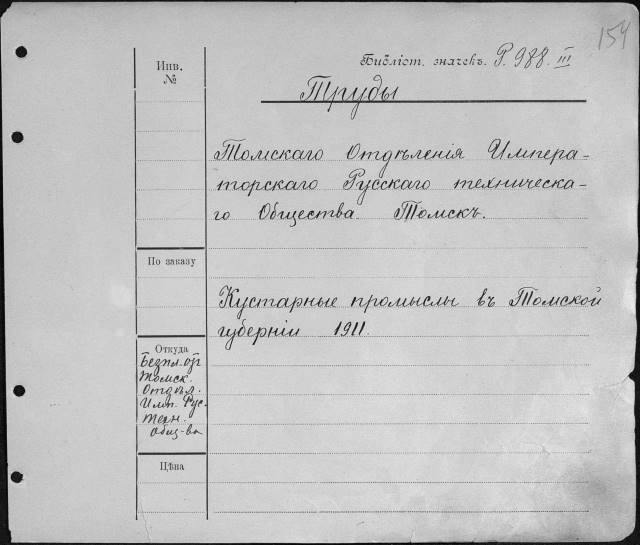 154
Библіот. значекъ. Р. 988. III
Инв.
№
Труды
Томскаго Отдѣленія Импера-
торскаго Русскаго техническа-
го Общества. Томскъ.
По заказу
Кустарные промыслы въ Томской
губерніи 1911.
Откуда
Безпл. от
Томск.
Отдѣл.
Имп. Рус.
Техн.
Общ-ва
Цѣна